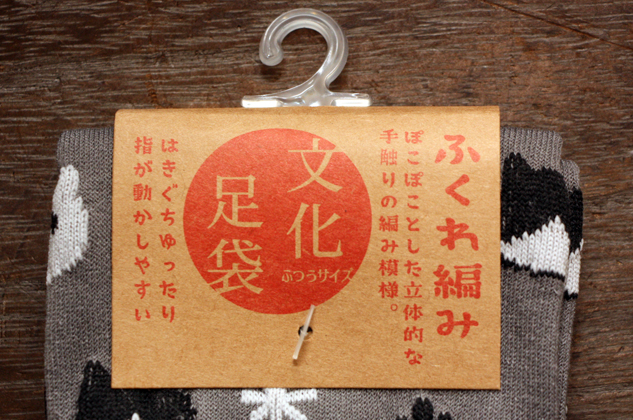 ふくれ編み
ぽこぽことした立体的な
手触りの編み模様。
文化
足袋
ふつうサイズ
はきぐちゆったり
指が動かしやすい